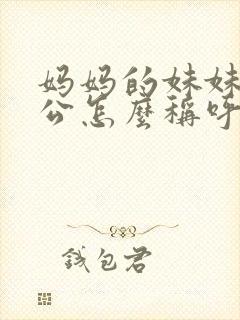 妈妈的妹妹
公怎麼稱呼
钱包君